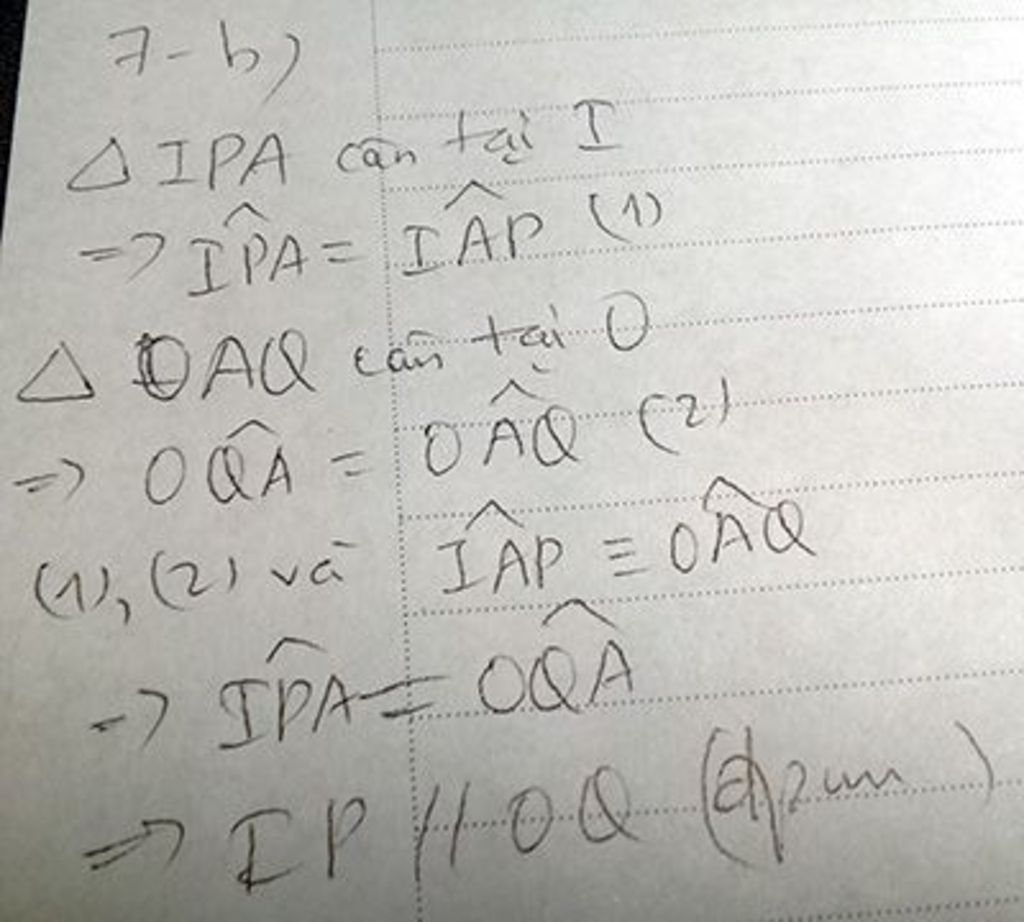 7-b)
△ IPA cân tại I
=> IP̂A = IÂP (1)
△ OAQ cân tại O
=> OQ̂A = OÂQ (2)
(1), (2) và IÂP ≡ OÂQ
=> IP̂A = OQ̂A
=> IP // OQ (đpcm)